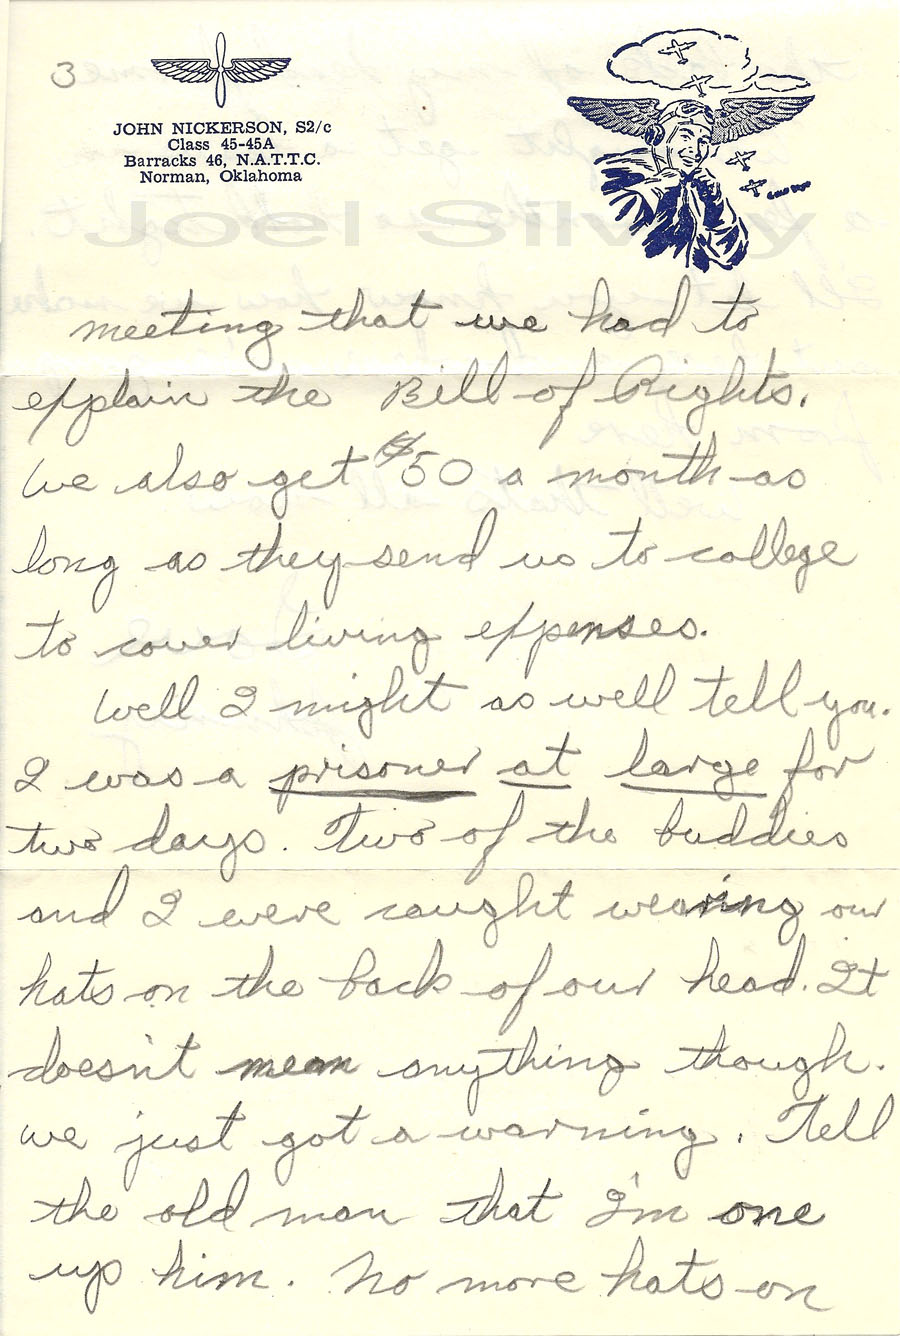 3
JOHN NICKERSON, S2/c
Class 45-45A
Barracks 46, N.A.T.T.C.
Norman, Oklahoma
Joel Silv y
meeting that we had to
explain the Bill of Rights.
We also get $50 a month as
long as they send us to college
to cover living expenses.
Well I might as well tell you.
I was a prisoner at large for
two days. Two of the buddies
and I were caught wearing our
hats on the back of our head. It
doesn't mean anything though.
we just got a warning. Tell
the old man that I'm one
up him. No more hats on